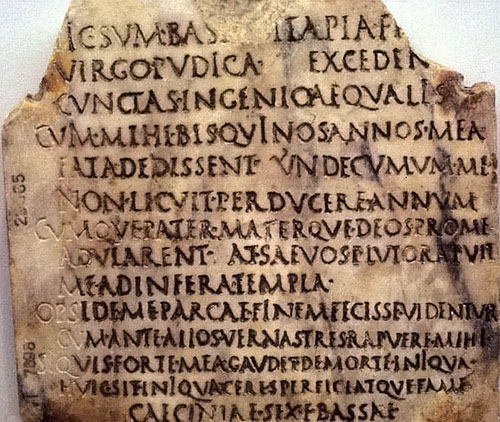 IC SVM BAS ILA PIA F
VIRGO PVDICA EXCEDEN
CVNCTAS INGENIO AEQVALES
CVM·MIHI·BIS QVINOS ANNOS·MEA
FATA DEDISSENT VNDECVMVM·ME
NON·LICVIT·PERDVCERE·ANNVM
CVMQVE·PATER·MATERQVE·DEOS·PRO·ME
ADVLARENT· AT·SAEVOS·PLVTO RAPVIT
ME AD INFERA TEMPLA·
OPSIDEM E PARCAE FINEM FECISSE VIDENTVR
CVM·ANTE·ALIOS VERNAS TRES RAPVERE·MIHI·
SI QVIS FORTE·MEA GAVDET·DE MORTE·INIQVA·
HVIC SIT INIQVA CERES PERFICIATQVE FAME
CALCINIAE·SEX·F·BASSAE